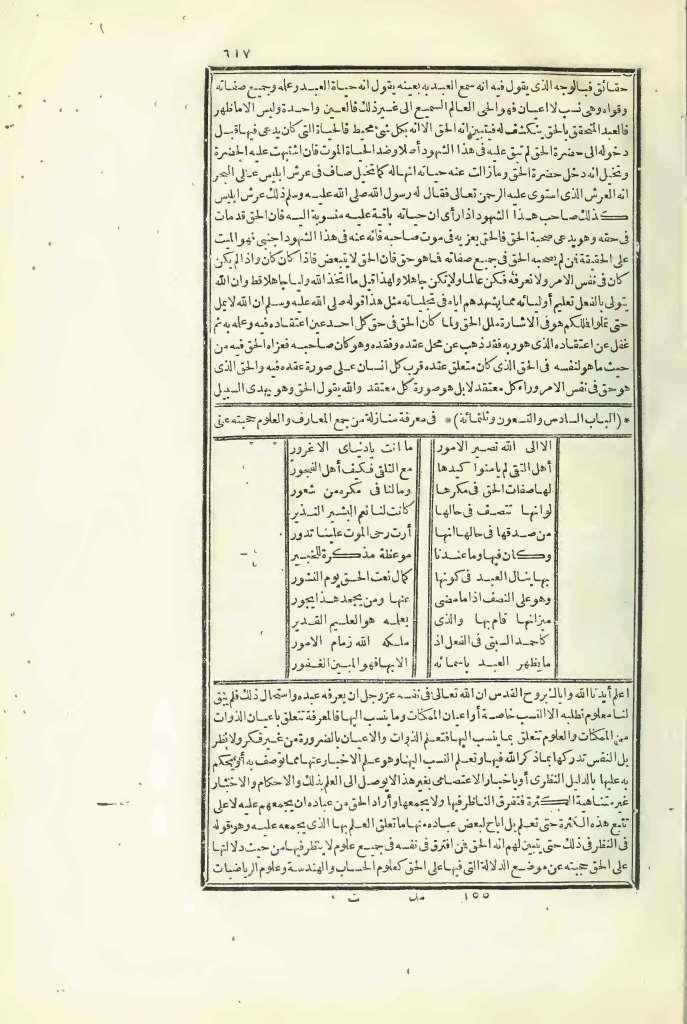 ٦١٧
حقائق فبالوجه الذى يقول فيه انه سمع العبد به بعينه يقول انه حياة العبد وعلمه وجميع صفاته
وقواه وهى نسب لا اعيان فهو الحى العالم السميع الى غير ذلك فالعين واحدة وليس الا ما ظهر
فالعبد المتحقق بالحق ينكشف له فيتبين انه الحق الا انه بكل شئ محيط فالحياة التى كان يدعى فيها قبل
دخوله الى حضرة الحق لم تبق عليه فى هذا الشهود أصلا وضد الحياة الموت فان اشتبهت عليه الحضرة
وتخيل انه دخل حضرة الحق وما زالت عنه حياته انها له كما تخيل صاف فى عرش ابليس على البحر
انه العرش الذى استوى عليه الرحمن تعالى فقال له رسول الله صلى الله عليه وسلم ذلك عرش ابليس
كذلك صاحب هذا الشهود اذا رأى ان حياته باقية عليه منسوبة اليه فان الحق قد مات
فى حقه وهو يدعى صحبة الحق فالحق يعزبه فى موت صاحبه فانه عنه فى هذا الشهود اجنبى فهو الميت
على الحقيقة فمن لم يصحبه الحق فى جميع صفاته فما هو حق فان الحق لا يتبعض فاذا كان كان واذا لم يكن
كان فى نفس الامر ولا نعرفه فكن عالما ولا تكن جاهلا ولهذا قيل ما اتخذ الله وليا جاهلا قط وان الله
يتولى بالفعل تعليم أوليائه مما يشهدهم اياه فى تجلياته مثل هذا قوله صلى الله عليه وسلم ان الله لا يمل
حتى تملوا فمللكم هو فى الاشارة ملل الحق ولما كان الحق فى حق كل احد عين اعتقاده فيه وعلمه به ثم
غفل عن اعتقاده الذى هو ربه فقد ذهب عن محل عقده وفقده وهو كان صاحبه فعزاه الحق فيه من
حيث ما هو لنفسه فى الحق الذى كان متعلق عقده قرب كل انسان على صورة عقده فيه والحق الذى
هو حق فى نفس الامر وراء كل معتقد لا بل هو صورة كل معتقد والله يقول الحق وهو يهدى السبيل
* (الباب السادس والتسعون وثلثمائة) * فى معرفة منازلة من جمع المعارف والعلوم حجبته عنى
الا الى الله تصير الامور ما انت يا دنياى الا غرور
أهل التقى لم يأمنوا كيدها مع التلقى فكيف أهل الفجور
لها صفات الحق فى مكرها ومالنا فى مكره من شعور
لو انها تتصف فى حالها كانت لنا نعم البشير النذير
من صدقها فى حالها انها أرت رحى الموت علينا تدور
وكان فيها وما عندنا موعظة مذكرة للخبير
بها ينال العبد فى كونها كمال نعت الحق يوم النشور
وهو على النصف اذا ما مضى عنها ومن يجحد هذا يجور
ميزانها قام بها والذى يعلمه هو العليم القدير
كأحمد السبتى فى الفعل اذ ملكه الله زمام الامور
ما يظهر العبد باسمائه الا بها فهو المبين الغفور
اعلم أيدنا الله واياك بروح القدس ان الله تعالى فى نفسه عز وجل ان يعرفه عبده واستحال ذلك فلم يبق
لنا معلوم نطلبه الا النسب خاصة أو اعيان الممكنات وما ينسب اليها فالمعرفة تتعلق باعيان الذوات
من الممكنات والعلوم تتعلق بما ينسب اليها فتعلم الذوات والاعيان بالضرورة من غير فكر ولا نظر
بل النفس تدركها بما ذكر الله فيها وتعلم النسب اليها وهو علم الاخبار عنها مما توصف به أو يحكم
به عليها بالدليل النظرى أو باخبار الاعتصامى بغير هذا لا يوصل الى العلم بذلك والاحكام والاخبار
غير متناهية الكثرة فتفرق الناظر فيها ولا يجمعها وأراد الحق من عباده ان يجمعهم عليه لا على
تتبع هذه الكثرة حتى تعلم بل اباح لبعض عباده منها ما تعلق العلم بها الذى يجمعه عليه وهو قوله
فى النظر فى ذلك حتى يتبين لهم انه الحق فمن افترق فى نفسه فى جميع علوم لا ينظر فيها من حيث دلالتها
على الحق حجبته عن موضع الدلالة التى فيها على الحق كعلوم الحساب والهندسة وعلوم الرياضيات
١٥٥ مك ت